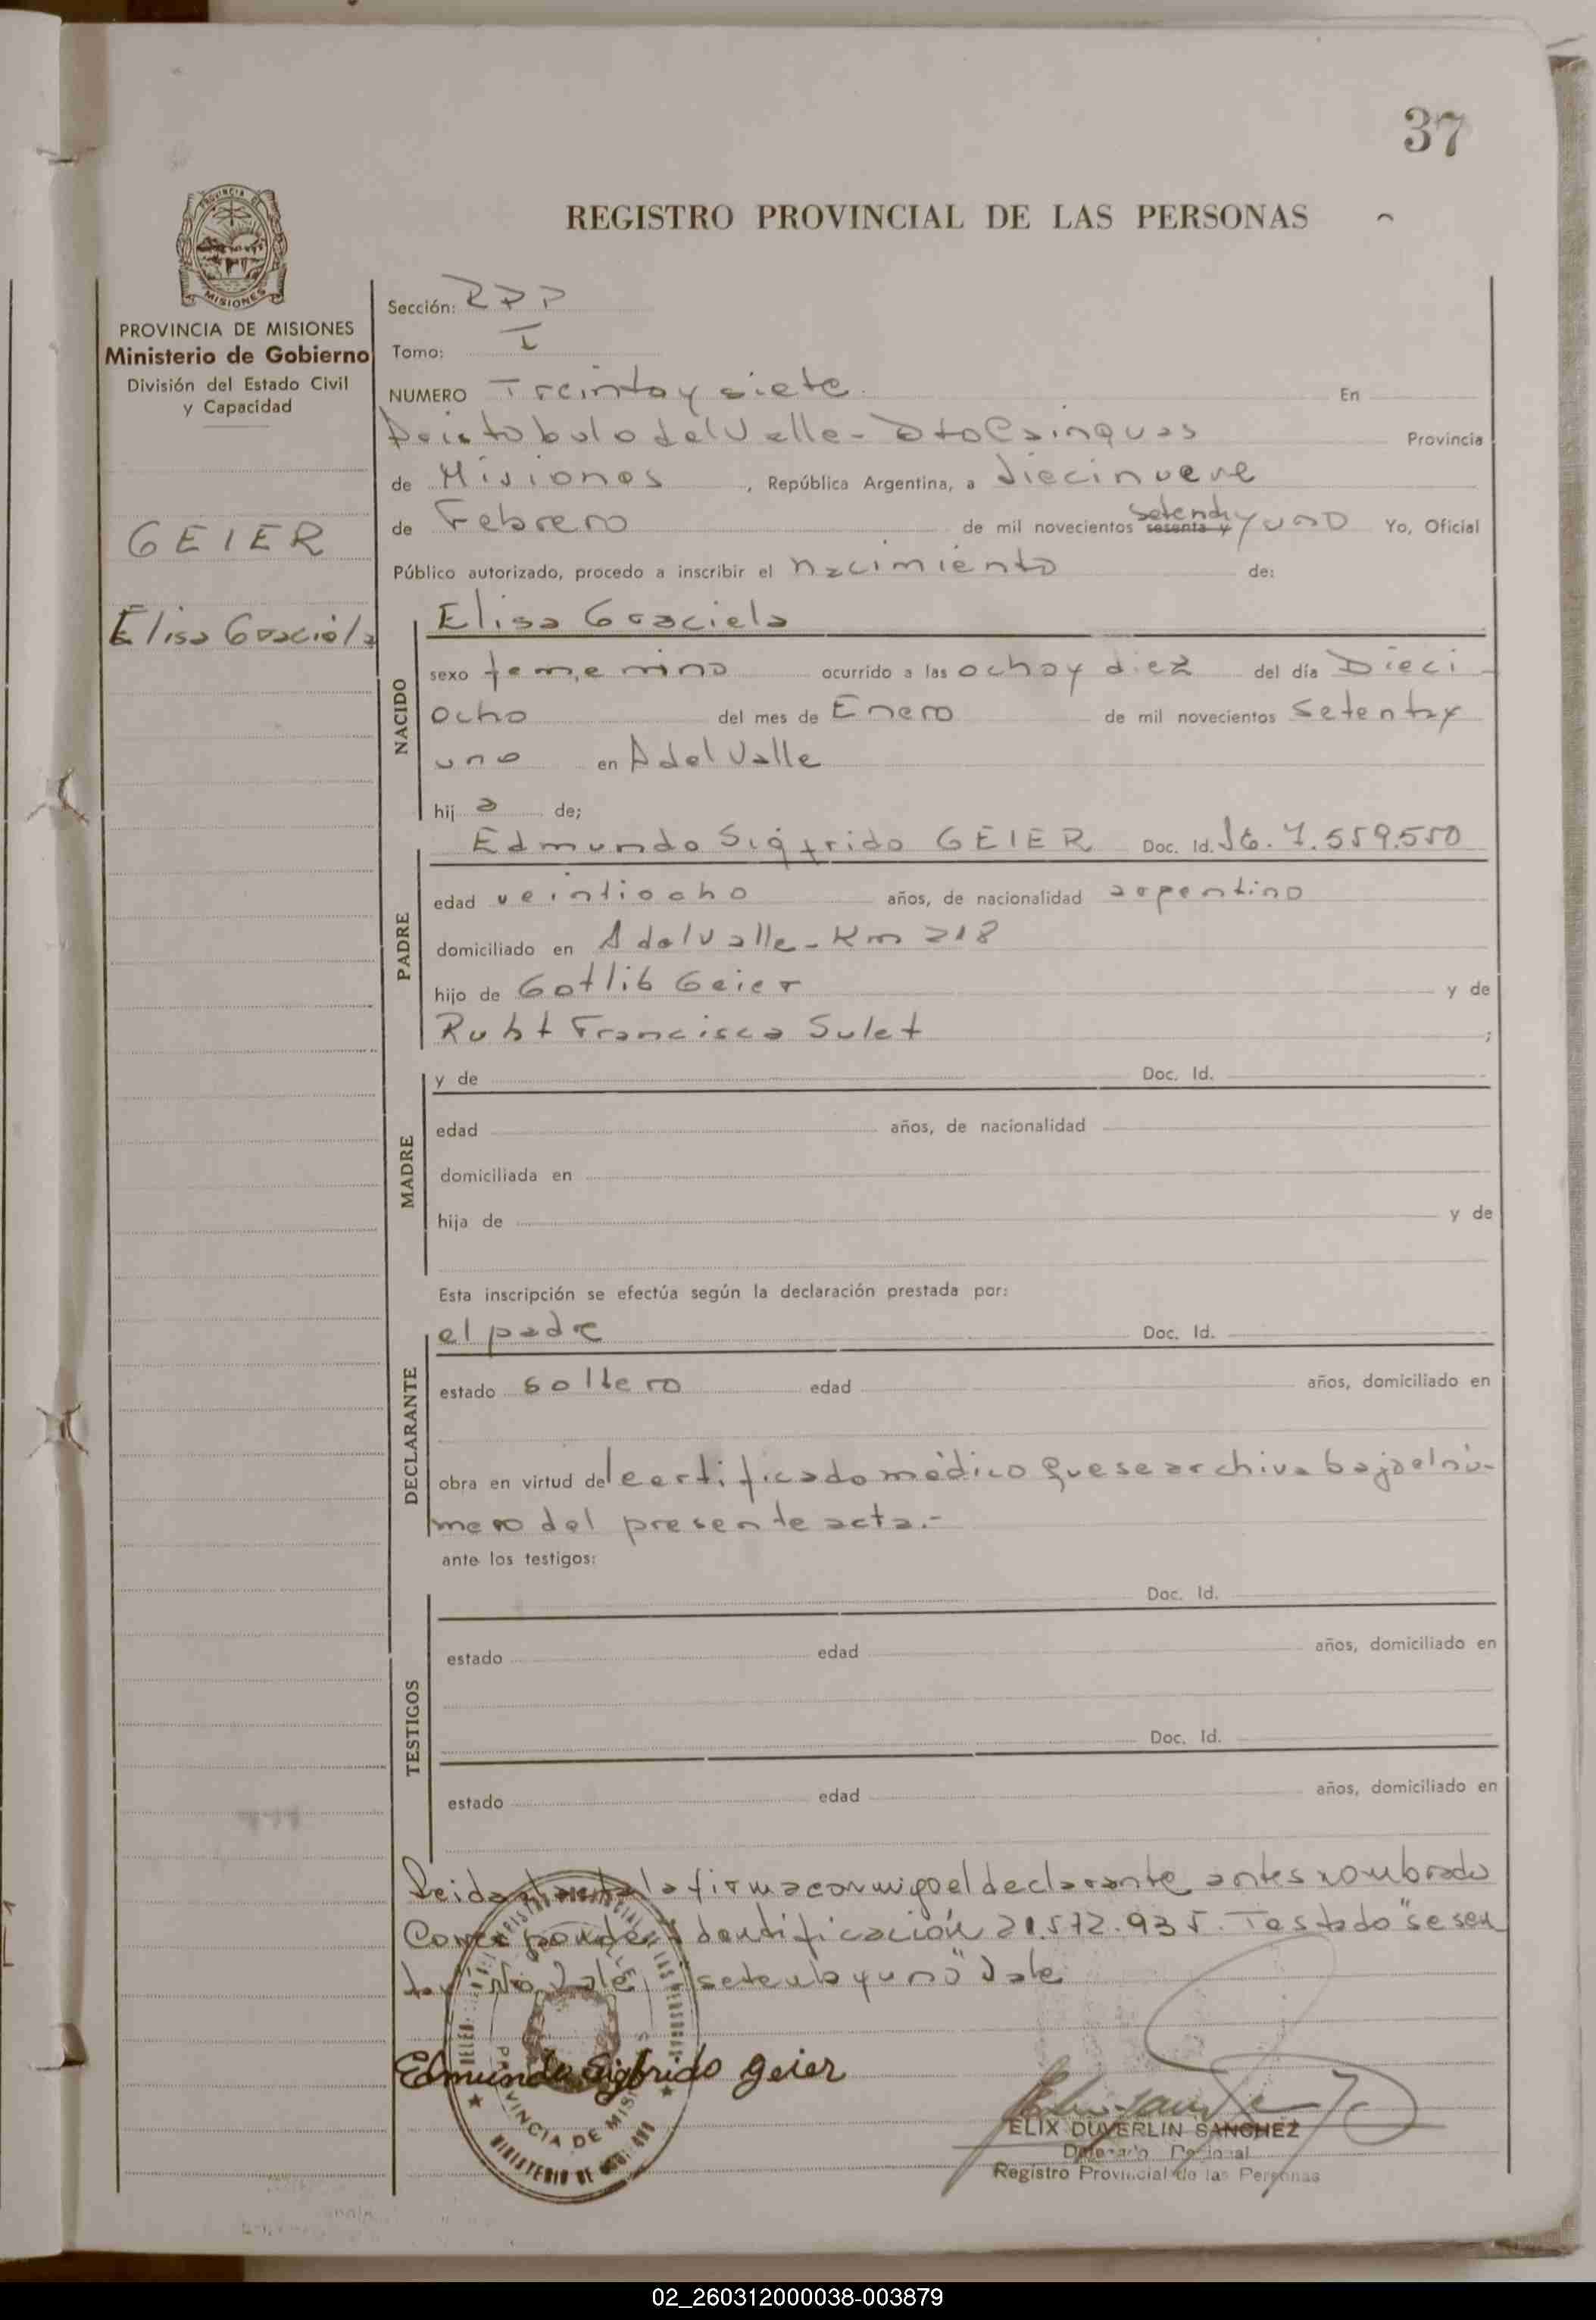 37
REGISTRO PROVINCIAL DE LAS PERSONAS
PROVINCIA DE
MISIONES
PROVINCIA DE MISIONES
Ministerio de Gobierno
División del Estado Civil
y Capacidad
GEIER
Elisa Graciela
Sección: RPP
Tomo: I
NUMERO Treinta y siete En
Aristobulo del Valle - Dto Cainguas Provincia
de Misiones, República Argentina, a diecinueve
de Febrero de mil novecientos sesenta y setenta y uno Yo, Oficial
Público autorizado, procedo a inscribir el nacimiento de:
NACIDO
Elisa Graciela
sexo femenino ocurrido a las ocho y diez del día Dieci
ocho del mes de Enero de mil novecientos setenta y
uno en A del Valle
hij a de;
PADRE
Edmundo Sigfrido GEIER Doc. Id. 7.559.550
edad veintiocho años, de nacionalidad argentino
domiciliado en A del Valle - Km 218
hijo de Gotlib Geier y de
Ruht Francisca Sulet ;
MADRE
y de Doc. Id.
edad años, de nacionalidad
domiciliada en
hija de y de
Esta inscripción se efectúa según la declaración prestada por:
DECLARANTE
el padre Doc. Id.
estado soltero edad años, domiciliado en
obra en virtud del certificado médico que se archiva bajo el nú-
mero del presente acta.-
ante los testigos:
TESTIGOS
Doc. Id.
estado edad años, domiciliado en
Doc. Id.
estado edad años, domiciliado en
Leida el acta la firma conmigo el declarante antes nombrado
Corresponde Identificación 21.572.935. Testado "sesen
ta y" No Vale, "setenta y uno" Vale
Edmundo Sigfrido Geier
PROVINCIA DE MISIONES
MINISTERIO DE GOB.
ELIX DUVERLIN SANCHEZ
Delegado Regional
Registro Provincial de las Personas
02_260312000038-003879